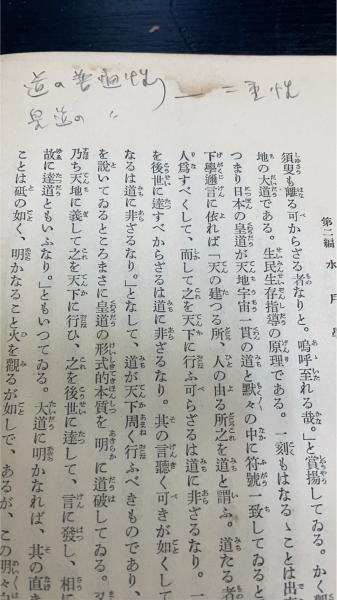 道の普遍性 ― 二重性
見道の 〃
第二編 水戸
須臾も離る可からざる者なりと。嗚呼至れる哉。」と賞揚してゐる。かく
地の大道である。生民生存指導の原理である。一刻もはなるゝことは出
つまり日本の皇道が天地宇宙一貫の道と默々の中に符號一致してゐると
下學邇言に依れば「天の建つる所、人の由る所之を道と謂ふ。道たる者
人爲すべくして、而して之を天下に行ふ可らざるは道に非ざるなり。一
を後世に達すべからざるは道に非ざるなり。其の言聽く可きが如くして
なるは道に非ざるなり。」となして、道が天下周く行ふべきものであり、
を說いてゐるところまさに皇道の形式的本質を明に道破してゐる。
乃ち天地に義して之を天下に行ひ、之を後世に達して、言に發し、相
故に達道ともいふなり。」ともいつてゐる。大道に明かなれば、其の直
ことは砥の如く、明かなること火を觀るが如しで、あるが、この明々